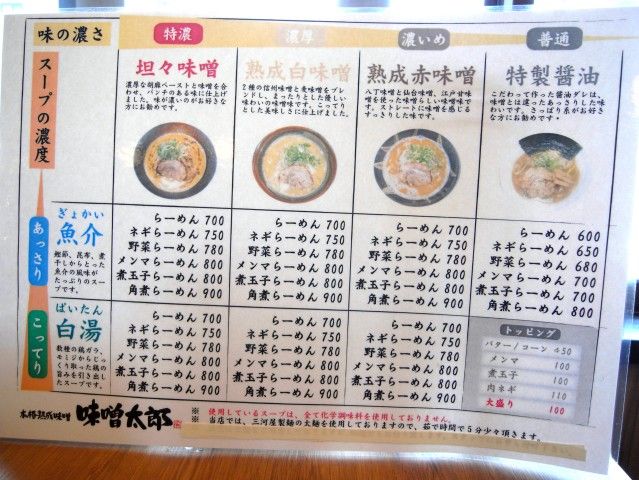 味の濃さ
特濃
濃厚
濃いめ
普通
スープの濃度
坦々味噌
濃厚な胡麻ペーストと味噌を合
わせ、パンチのある味に仕上げ
ました。味が濃いのがお好きな
方にお勧めです。
熟成白味噌
2種の信州味噌と麦味噌をブ
レンドし、まったりとした優しい
味わいの味噌味です。こってり
として美味しさに仕上げました。
熟成赤味噌
八丁味噌と仙台味噌、江戸甘味
噌を使った味噌らしい味噌味で
す。ストレートに味噌を感じる
すっきりした味です。
特製醤油
こだわって作った醤油ダレは、
味噌とは違ったあっさりした味
わいです。さっぱり系がお好き
な方にお勧めです。
あっさり
ぎょかい
魚介
鰹節、昆布、煮
干しからとった
魚介の風味が
たっぷりのスー
プです。
らーめん 700
ネギらーめん 750
野菜らーめん 780
メンマらーめん 800
煮玉子らーめん 800
角煮らーめん 900
らーめん 700
ネギらーめん 750
野菜らーめん 780
メンマらーめん 800
煮玉子らーめん 800
角煮らーめん 900
らーめん 700
ネギらーめん 750
野菜らーめん 780
メンマらーめん 800
煮玉子らーめん 800
角煮らーめん 900
らーめん 600
ネギらーめん 650
野菜らーめん 680
メンマらーめん 700
煮玉子らーめん 700
角煮らーめん 800
こってり
ぱいたん
白湯
数種の鶏ガラ、
モミジからじっ
くり取った鶏の
旨みを引き出し
たスープです。
らーめん 700
ネギらーめん 750
野菜らーめん 780
メンマらーめん 800
煮玉子らーめん 800
角煮らーめん 900
らーめん 700
ネギらーめん 750
野菜らーめん 780
メンマらーめん 800
煮玉子らーめん 800
角煮らーめん 900
らーめん 700
ネギらーめん 750
野菜らーめん 780
メンマらーめん 800
煮玉子らーめん 800
角煮らーめん 900
トッピング
バター/コーン 各50
メンマ 100
煮玉子 100
肉ネギ 110
大盛り 100
本格熟成味噌 味噌太郎
※ 使用しているスープは、全て化学調味料を使用しておりません。
※ 当店では、三河屋製麺の太麺を使用しておりますので、茹で時間で5分少々頂きます。